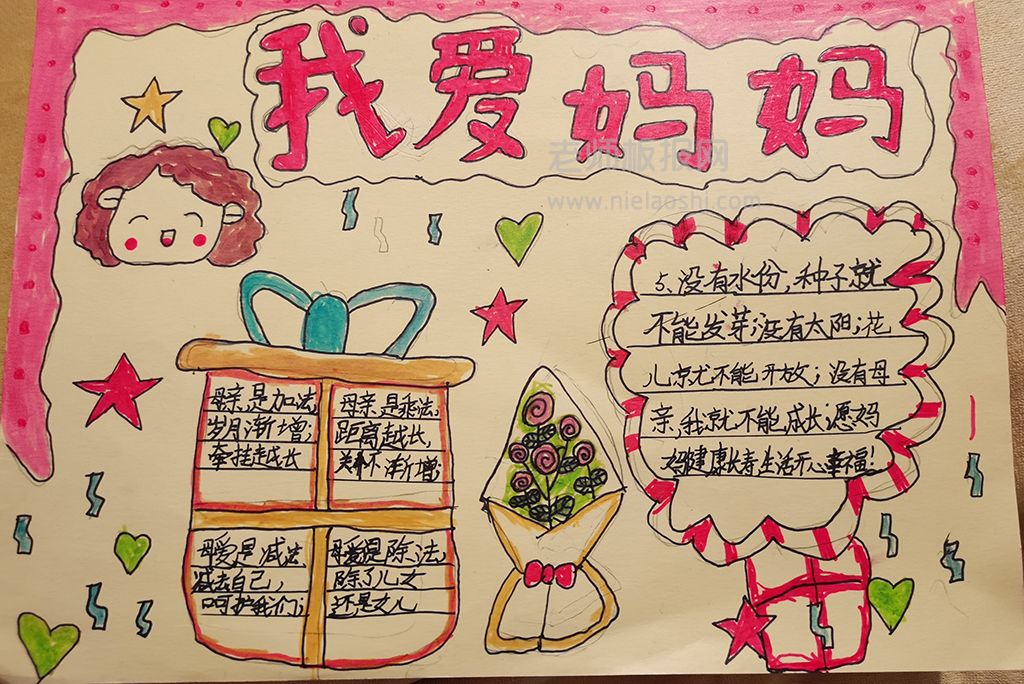 我爱妈妈
老师板报网
www.nielaoshi.com
5、没有水份,种子就
不能发芽;没有太阳,花
儿就不能开放;没有母
亲,我就不能成长;愿妈
妈健康长寿,生活开心幸福!
母亲是加法,
岁月渐增;
牵挂越长
母亲是乘法,
距离越长,
关怀渐增;
母爱是减法
减去自己,
呵护我们;
母爱是除法,
除了儿女
还是女儿